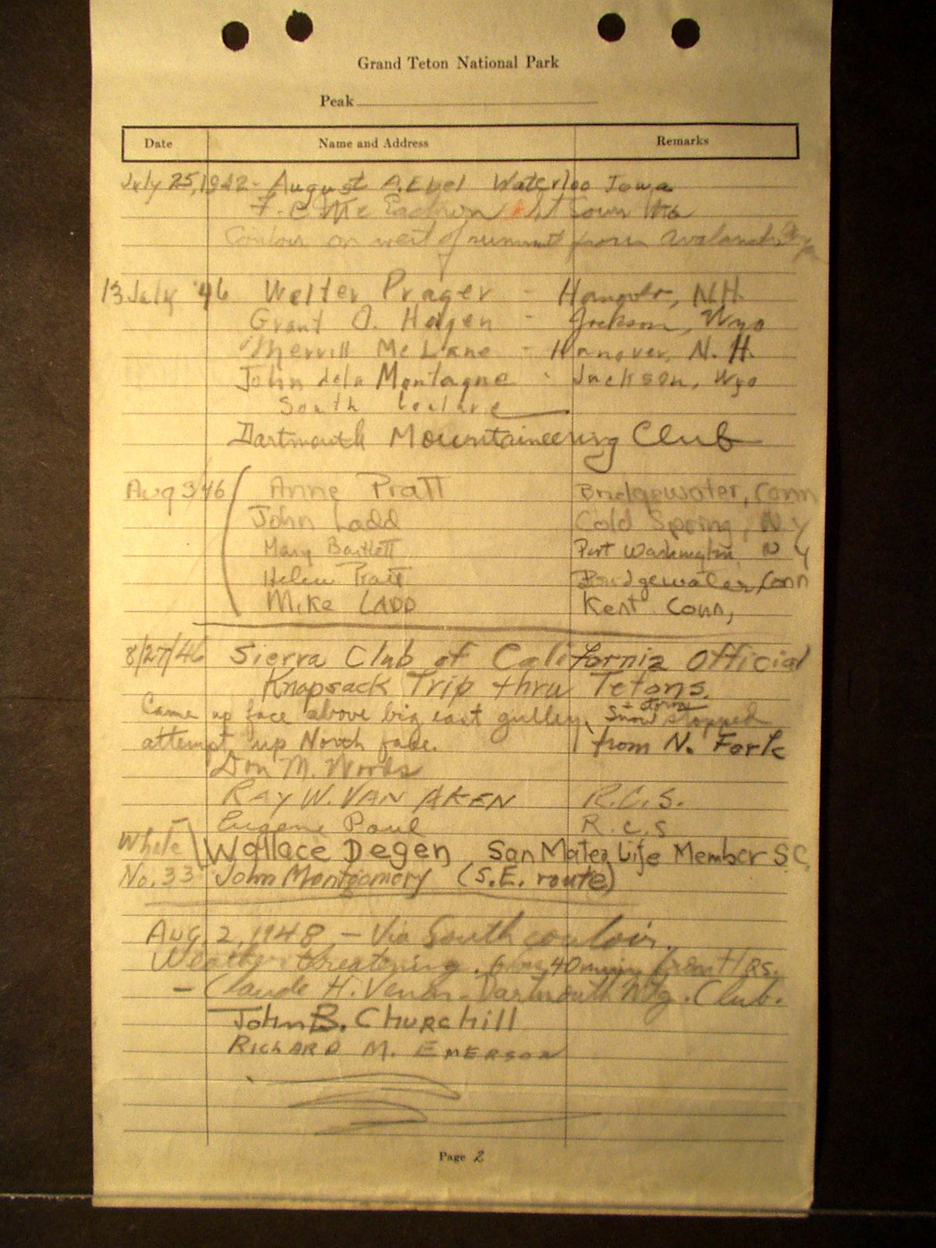 Grand Teton National Park
Peak
Date Name and Address Remarks
July 25, 1942 - August A. Ebel Waterloo Iowa
F. C. Mc
on west of summit from Avalanche
13 July '46 Walter Prager - Hanover, N.H.
Grant O. Hagen - Jackson, Wyo
Merrill McLane - Hanover, N. H.
John dela Montagne - Jackson, Wyo
South
Dartmouth Mountaineering Club
Aug 3 46 Anne Pratt Bridgewater, Conn
John Ladd Cold Spring, N Y
Mary Bartlett Port Washington N Y
Helen Pratt Bridgewater, Conn
Mike Ladd Kent Conn,
8/27/46 Sierra Club of California Official
Knapsack Trip thru Tetons.
Came up face above big east gulley. Snow + storm stopped
attempt up North face. from N. Fork
Don M. Woods
RAY W. VAN AKEN R.C.S.
Eugene Paul R.C.S
Wallace Degen San Mateo Life Member S.C.
No. 33 John Montgomery (S.E. route)
Aug 2, 1948 - Via South couloir.
Weather threatening. 40 min from
- Claude H. Dartmouth Mtg. Club.
John B. Churchill
RICHARD M. EMERSON
Page 2